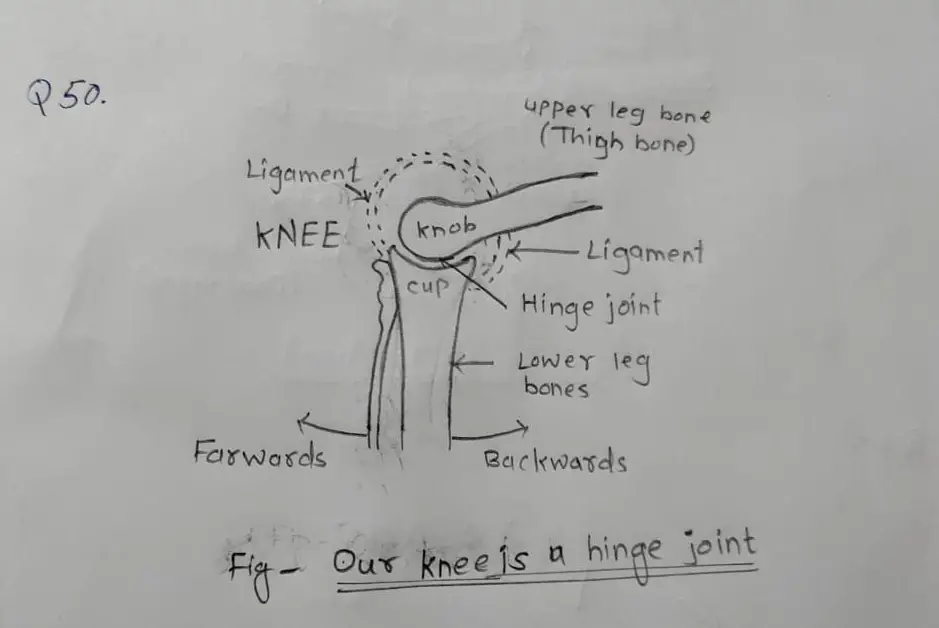 Q 50.
upper leg bone
(Thigh bone)
Ligament
KNEE
knob
Ligament
cup
Hinge joint
Lower leg
bones
Farwards
Backwards
Fig- Our knee is a hinge joint